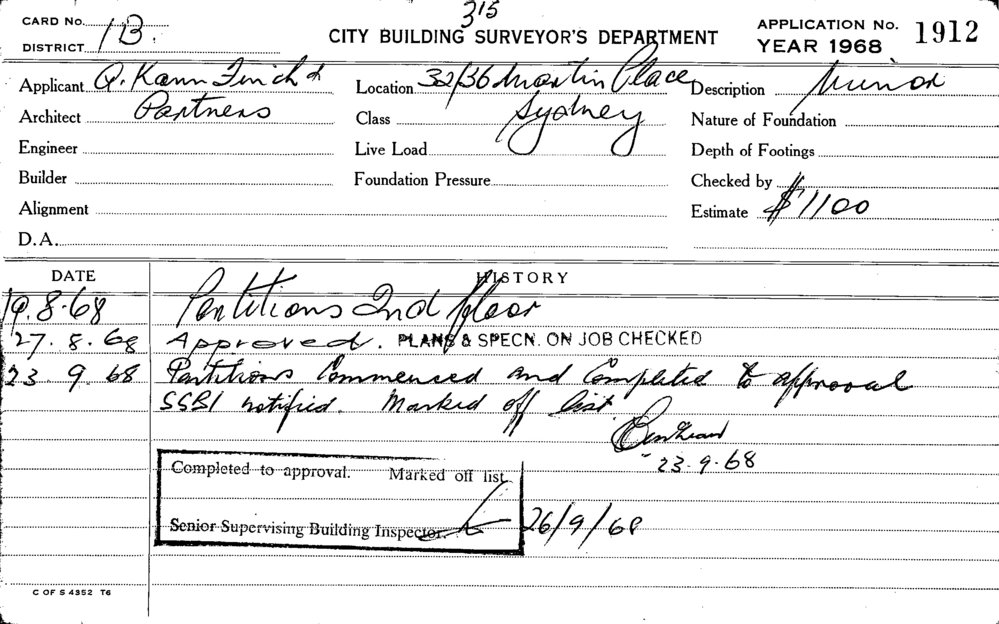 315
CARD No.
DISTRICT 1B.
CITY BUILDING SURVEYOR'S DEPARTMENT
APPLICATION No. 1912
YEAR 1968
Applicant Q. Kann Finch &
Architect Partners
Engineer
Builder
Alignment
D.A.
Location 32/36 Martin Place
Class Sydney
Live Load
Foundation Pressure
Description Minor
Nature of Foundation
Depth of Footings
Checked by
Estimate $1100
DATE HISTORY
19.8.68 Partitions 2nd floor
27.8.68 Approved. PLANS & SPECN. ON JOB CHECKED
23.9.68 Partitions Commenced and Completed to approval
SSBI notified. Marked off list.
23.9.68
Completed to approval. Marked off list.
Senior Supervising Building Inspector. 26/9/68
C OF S 4352 T6